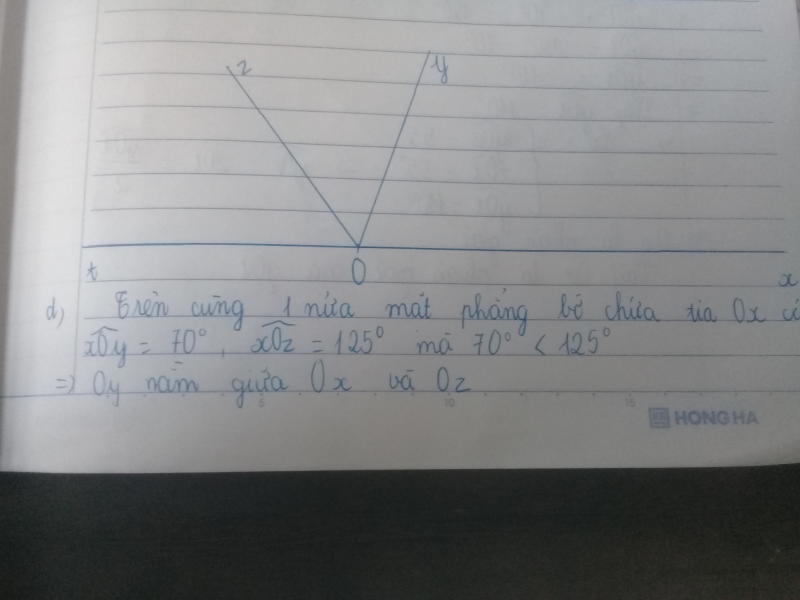 z
y
t
O
x
d) Trên cùng 1 nửa mặt phẳng bờ chứa tia Ox có
xÔy = 70°, xÔz = 125° mà 70° < 125°
=> Oy nằm giữa Ox và Oz
5 10 15
HONG HA